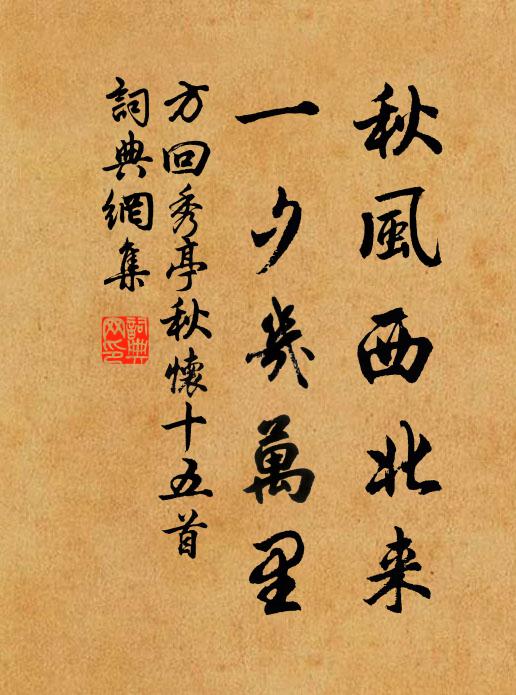 秋風西北来
一夕幾萬里
方回秀亭秋懷十五首
詞典網集
詞典网印